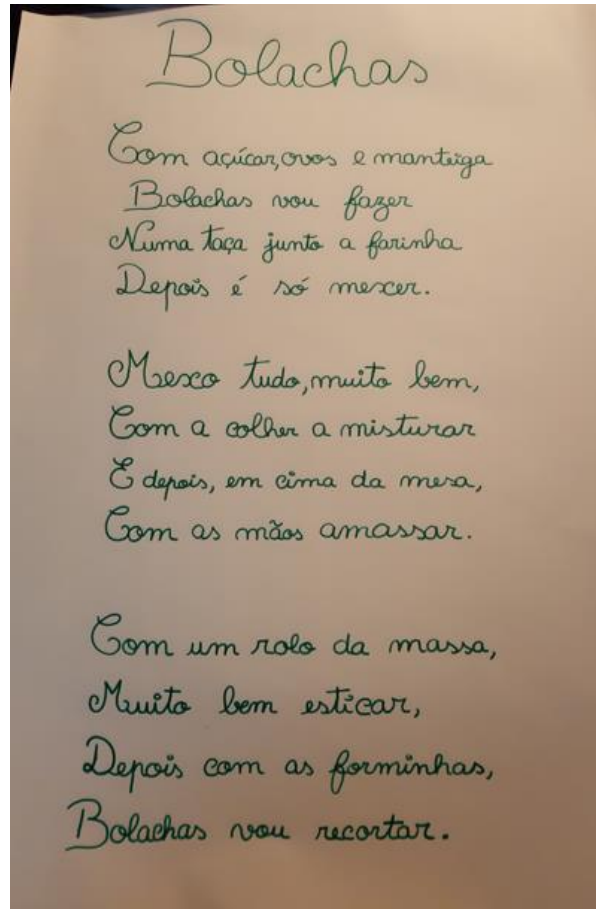 Bolachas
Com açúcar, ovos e manteiga
Bolachas vou fazer
Numa taça junto a farinha
Depois é só mexer.
Mexo tudo, muito bem,
Com a colher a misturar
E depois, em cima da mesa,
Com as mãos amassar.
Com um rolo da massa,
Muito bem esticar,
Depois com as forminhas,
Bolachas vou recortar.